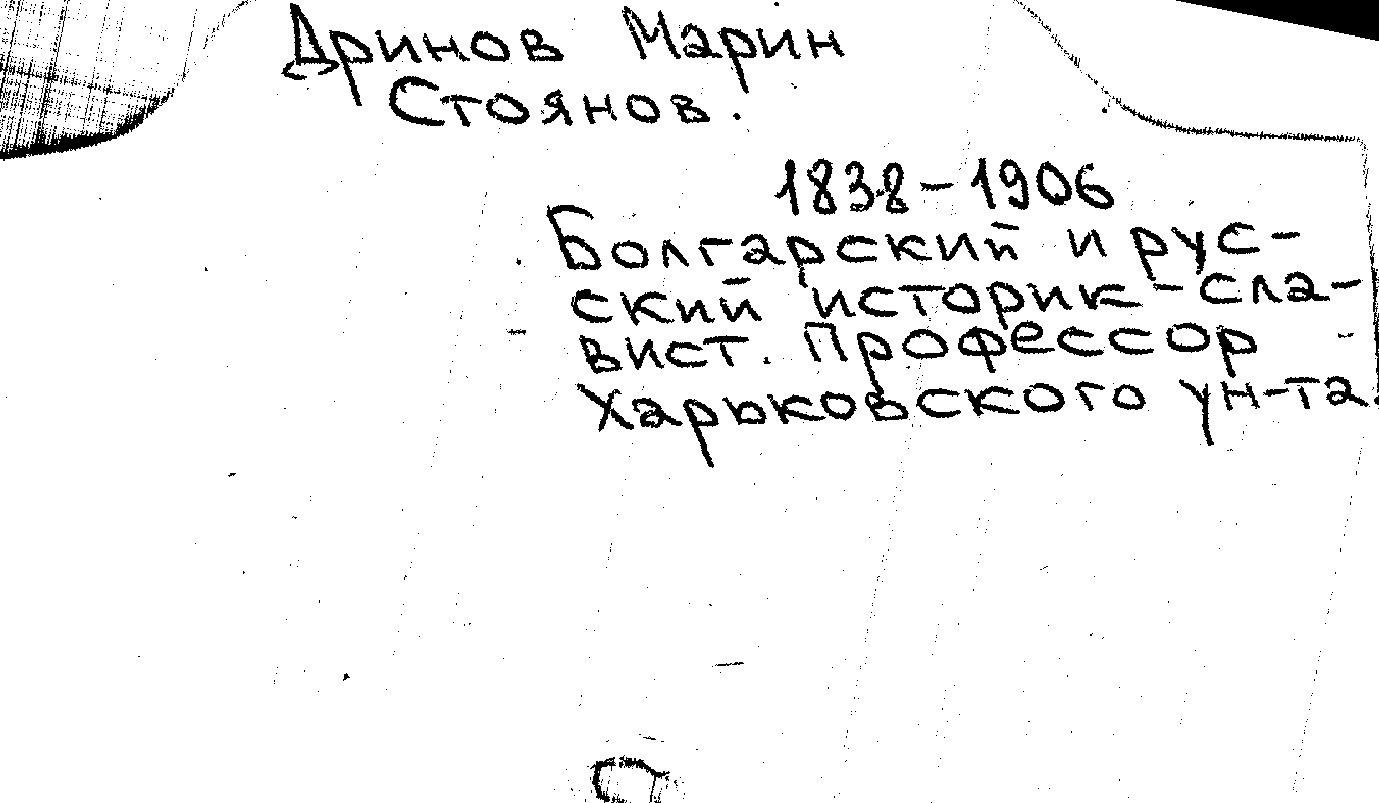 Дринов Марин
Стоянов.
1838-1906
Болгарский и рус-
ский историк-сла-
вист. Профессор
Харьковского ун-та.